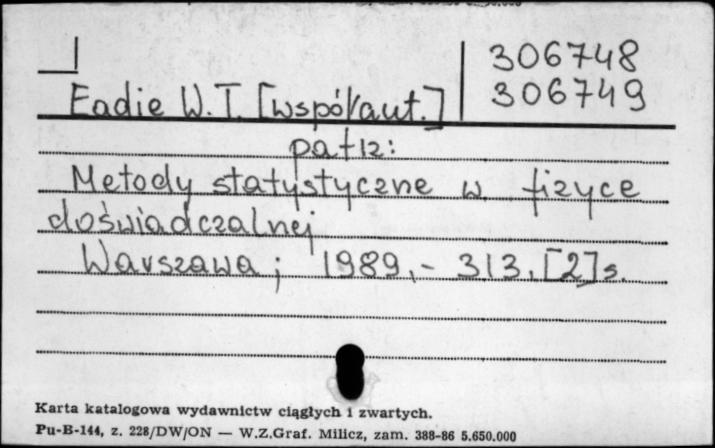 306748
Eadie W. T. [współaut.] 306749
patrz:
Metody statystyczne w fizyce
doświadczalnej
Warszawa ; 1989.- 313, [2] s.
Karta katalogowa wydawnictw ciągłych i zwartych.
Pu-B-144, z. 228/DW/ON — W.Z.Graf. Milicz, zam. 388-86 5.650.000